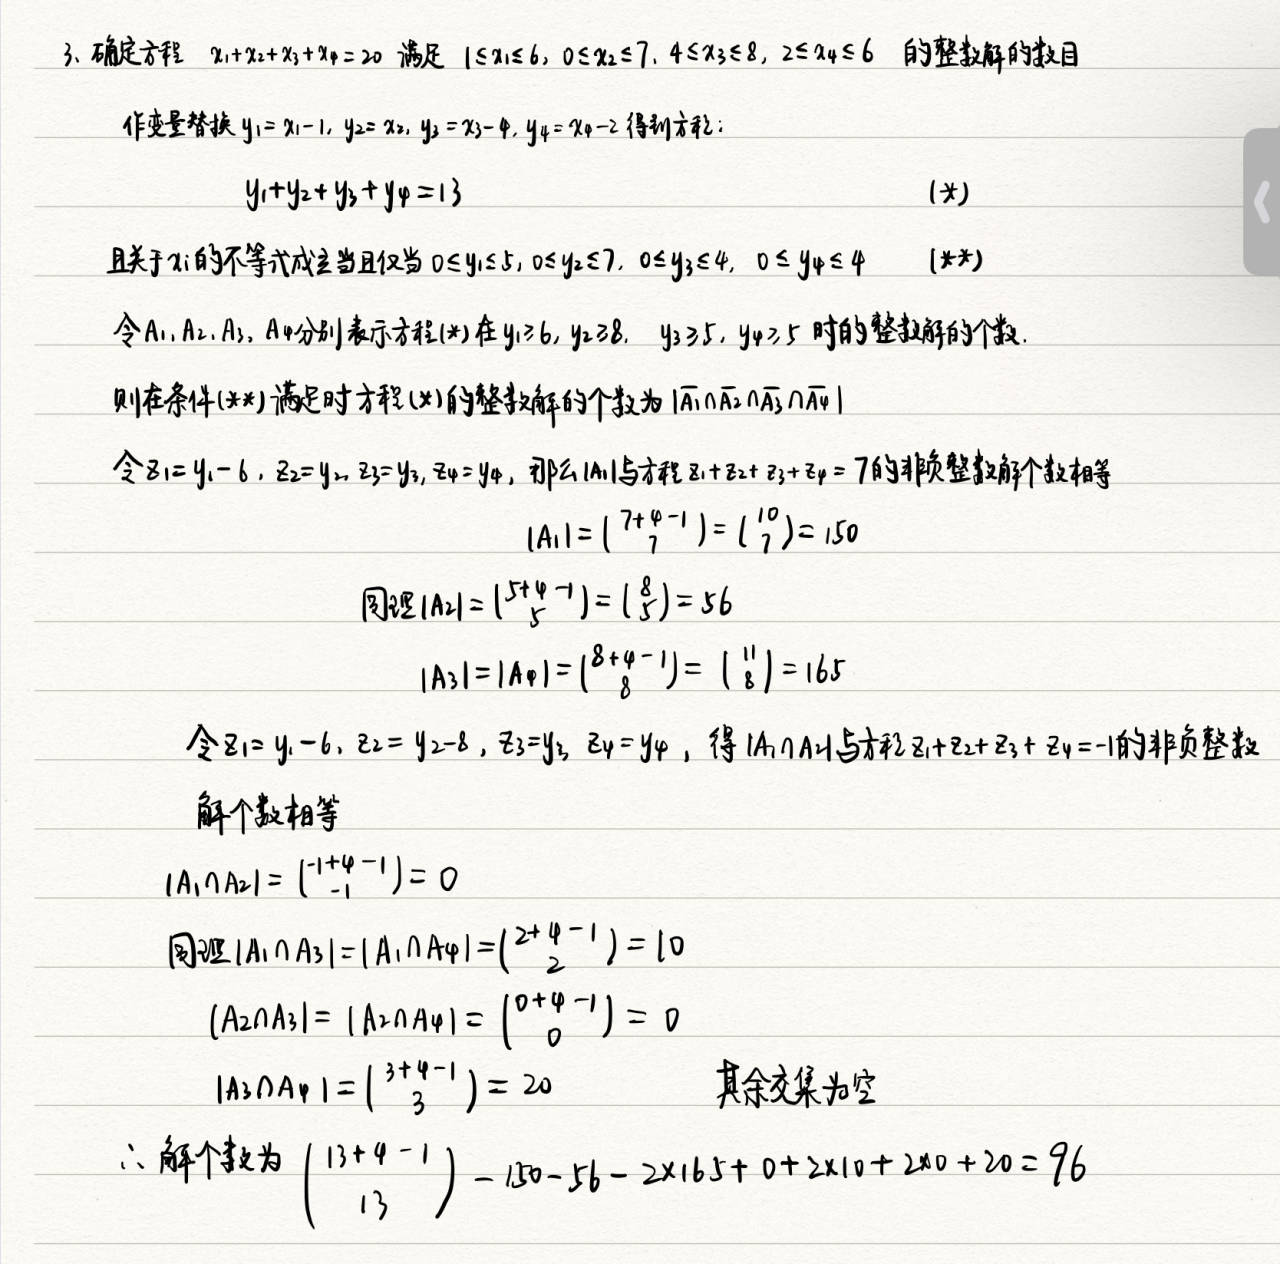 3、确定方程 x₁+x₂+x₃+x₄=20 满足 1≤x₁≤6, 0≤x₂≤7, 4≤x₃≤8, 2≤x₄≤6 的整数解的数目
作变量替换 y₁=x₁-1, y₂=x₂, y₃=x₃-4, y₄=x₄-2 得到方程:
y₁+y₂+y₃+y₄=13 (*)
且关于xi的不等式成立当且仅当 0≤y₁≤5, 0≤y₂≤7, 0≤y₃≤4, 0≤y₄≤4 (**)
令A₁、A₂、A₃、A₄分别表示方程(*)在y₁≥6, y₂≥8, y₃≥5, y₄≥5 时的整数解的个数.
则在条件(**)满足时方程(*)的整数解的个数为 |A̅₁∩A̅₂∩A̅₃∩A̅₄|
令z₁=y₁-6, z₂=y₂, z₃=y₃, z₄=y₄, 那么|A₁|与方程z₁+z₂+z₃+z₄=7的非负整数解个数相等
|A₁|=(7+4-1 7)=(10 7)=150
同理|A₂|=(5+4-1 5)=(8 5)=56
|A₃|=|A₄|=(8+4-1 8)=(11 8)=165
令z₁=y₁-6, z₂=y₂-8, z₃=y₃ z₄=y₄, 得|A₁∩A₂|与方程z₁+z₂+z₃+z₄=-1的非负整数
解个数相等
|A₁∩A₂|=(-1+4-1 -1)=0
同理|A₁∩A₃|=|A₁∩A₄|=(2+4-1 2)=10
|A₂∩A₃|=|A₂∩A₄|=(0+4-1 0)=0
|A₃∩A₄|=(3+4-1 3)=20 其余交集为空
∴解个数为(13+4-1 13)-150-56-2×165+0+2×10+2×0+20=96